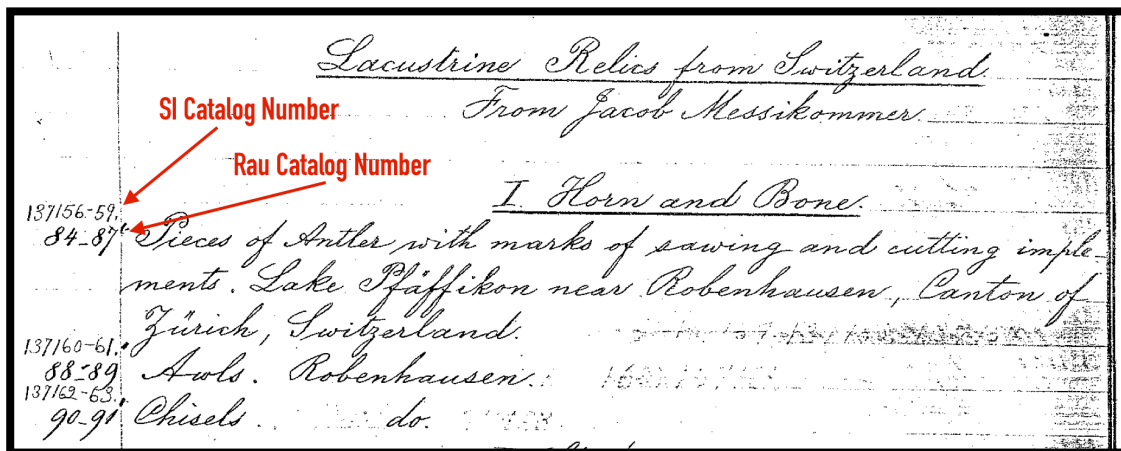 Lacustrine Relics from Switzerland.
From Jacob Messikommer.
SI Catalog Number
Rau Catalog Number
I. Horn and Bone.
137156-59.
84-87 Pieces of Antler with marks of sawing and cutting imple-
ments. Lake Pfäffikon near Robenhausen, Canton of
Zürich, Switzerland.
137160-61.
88-89 Awls. Robenhausen.
137162-63.
90-91 Chisels. do.